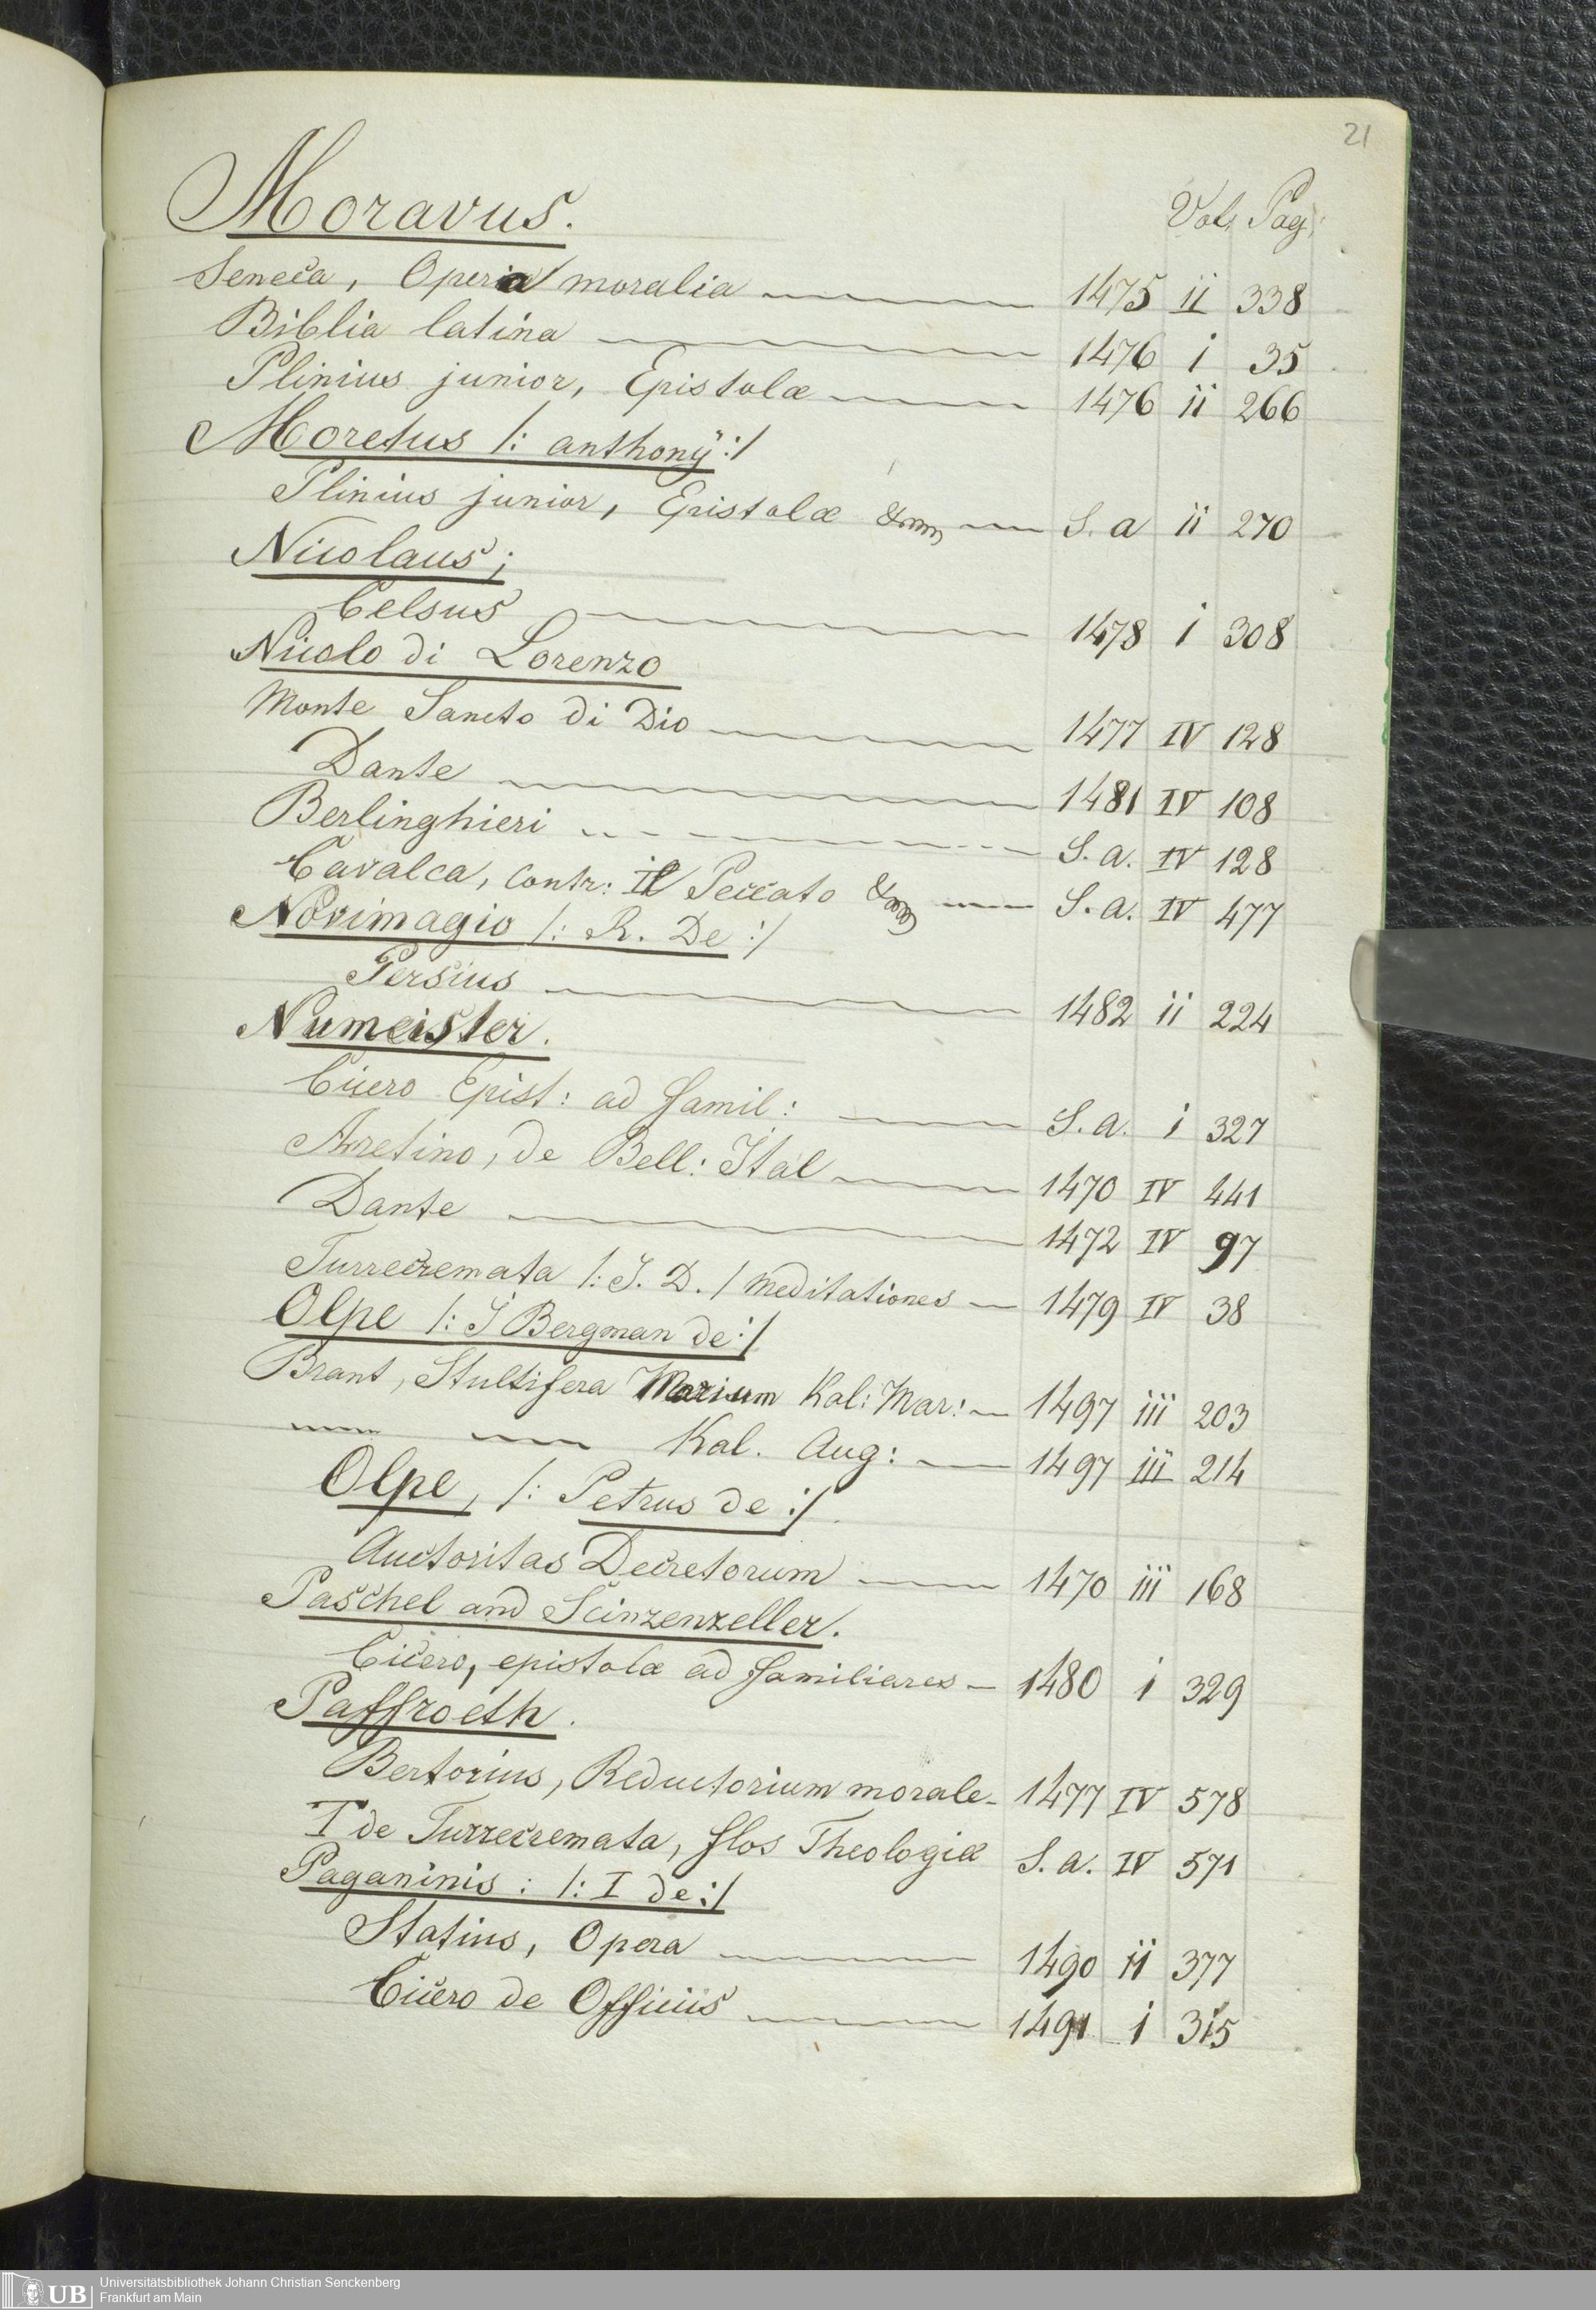 21
Vol. Pag:
Moravus.
Seneca, Opera moralia 1475 ii 338
Biblia latina 1476 i 35
Plinius junior, Epistolæ 1476 ii 266
Moretus /: anthonÿ :/
Plinius junior, Epistolæ & S. a ii 270
Nicolaus;
Celsus 1478 i 308
Nicolo di Lorenzo
Monte Sancto di Dio 1477 IV 128
Dante 1481 IV 108
Berlinghieri S. a. IV 128
Cavalca, contr: Il Peccato & S. a. IV 477
Novimagio /: R. De :/
Persius 1482 ii 224
Numeister.
Cicero Epist: ad famil: S. a. i 327
Aretino, de Bell: Ital 1470 IV 441
Dante 1472 IV 97
Turrecremata /: J. D. / meditationes 1479 IV 38
Olpe /: J Bergman de :/
Brant, Stultifera Kal: Mar: 1497 iii 203
Kal. Aug: 1497 iii 214
Olpe, /: Petrus de :/
Auctoritas Decretorum 1470 iii 168
Paschel and Scinzenzeller.
Cicero, epistolæ ad familiares 1480 i 329
Paffroeth.
Bertorius, Reductorium morale 1477 IV 578
I de Turrecremata, flos Theologiæ S. a. IV 571
Paganinis: /: I de :/
Statius, Opera 1490 ii 377
Cicero de Officiis 1491 i 315
UB
Universitätsbibliothek Johann Christian Senckenberg
Frankfurt am Main